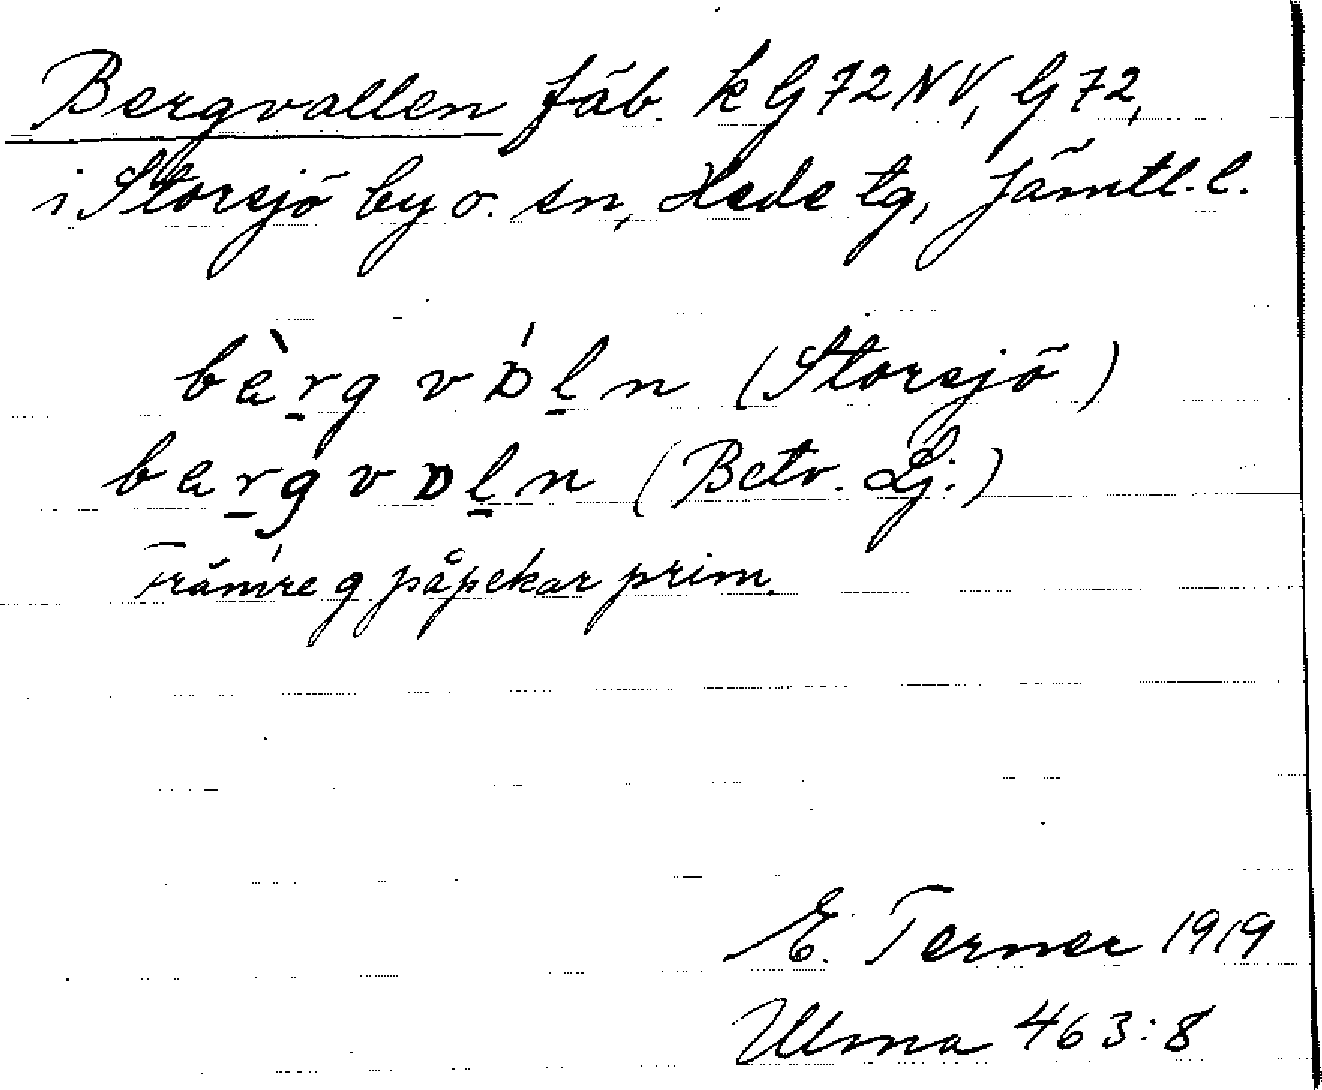 Bergvallen fäb. k G 72 NV, G 72,
i Storsjö by o. sn, Hede tg, Jämtl. l.
bèr̲g vᴅ́l̲n (Storsjö)
ber̲gvᴅl̲n (Betv. Lj.)
Främre g påpekar prim.
E. Terner 1919
Ulma 463:8